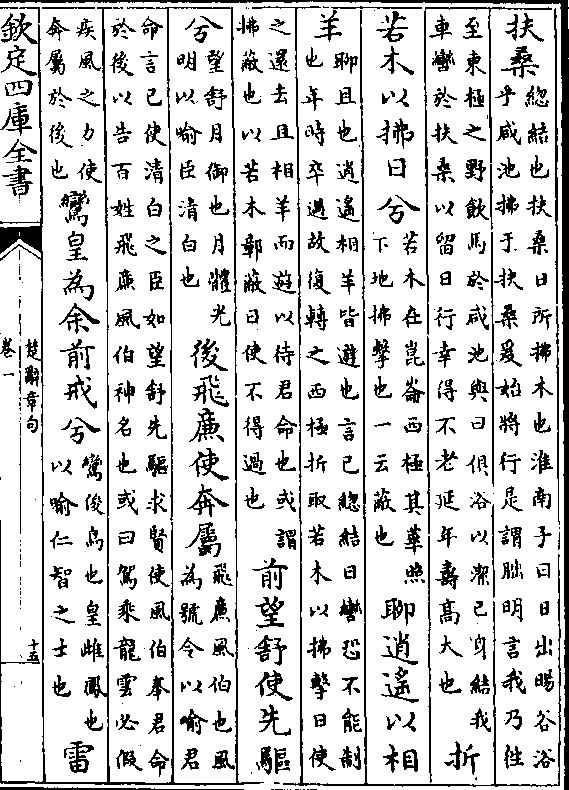 扶桑總結也扶桑日所拂木也淮南子曰日出暘谷浴
乎咸池拂于扶桑爰始將行是謂朏明言我乃往
至東極之野飲馬於咸池與日俱浴以潔己身結我
車轡於扶桑以留日行幸得不老延年壽高大也折
若木以拂日兮若木在崑崙西極其華照
下地拂擊也一云蔽也聊逍遙以相
羊聊且也逍遙相羊皆遊也言己總結日轡恐不能制
也年時卒過故復轉之西極折取若木以拂擊日使
之還去且相羊而遊以待君命也或謂
拂蔽也以若木鄣蔽日使不得過也前望舒使先驅
兮望舒月御也月體光
明以喻臣清白也後飛廉使奔屬飛廉風伯也風
為號令以喻君
命言己使清白之臣如望舒先驅求賢使風伯奉君命
於後以告百姓飛廉風伯神名也或曰駕乘龍雲必假
疾風之力使
奔屬於後也鸞皇為余前戒兮鸞俊鳥也皇雌鳳也
以喻仁智之士也雷
欽定四庫全書
楚辭章句
卷一
十五